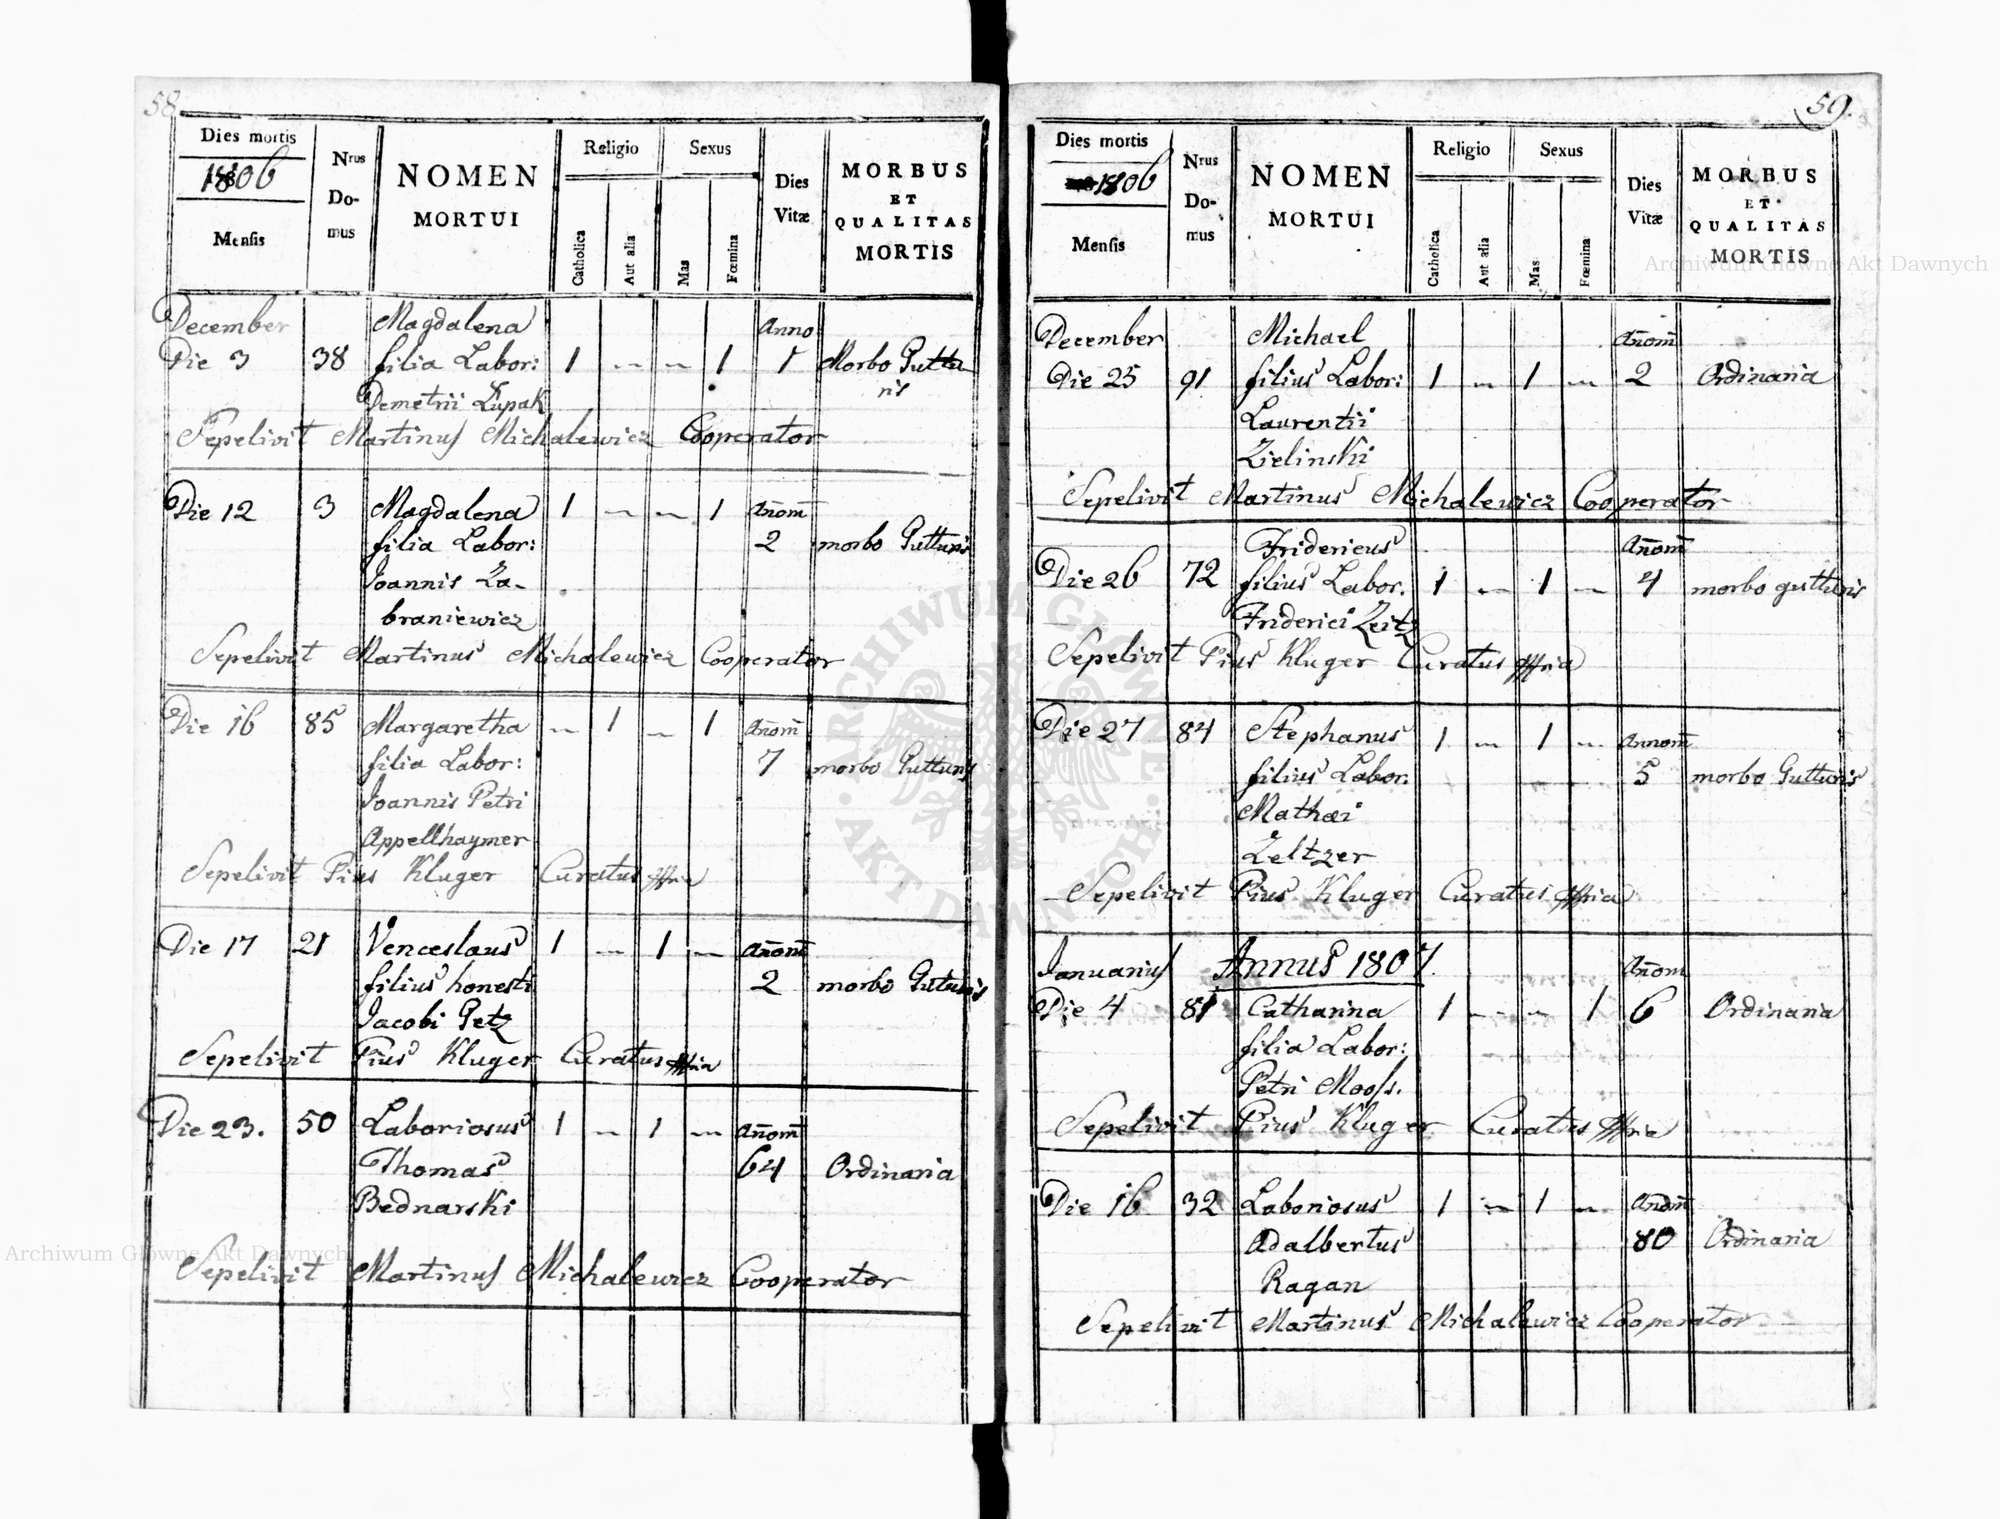 58
Dies mortis
1806
Mensis
Nrus Do-mus
NOMEN
MORTUI
Religio
Catholica
Aut alia
Sexus
Mas
Fœmina
Dies
Vitæ
MORBUS
ET
QUALITAS
MORTIS
December Magdalena Anno
Die 3 38 filia Labor: 1 — — 1 1 Morbo Guttu-
Demetrii Łupak nis
Sepelivit Martinus Michalewicz Cooperator
Die 12 3 Magdalena 1 — — 1 Anom̄
filia Labor: 2 morbo Gutturis
Joannis Za-
braniewicz
Sepelivit Martinus Michalewicz Cooperator
Die 16 85 Margaretha — 1 — 1 Anom̄
filia Labor: 7 morbo Gutturis
Joannis Petri
Appellhaymer
Sepelivit Pius Kluger Curatus
Die 17 21 Venceslaus 1 — 1 — Anom̄
filius honesti 2 morbo Guturis
Jacobi Petz
Sepelivit Pius Kluger Curatus
Die 23. 50 Laboriosus 1 — 1 — Anom̄
Thomas 64 Ordinaria
Bednarski
Sepelivit Martinus Michalewicz Cooperator
59.
Dies mortis
1806
Mensis
Nrus Do-mus
NOMEN
MORTUI
Religio
Catholica
Aut alia
Sexus
Mas
Fœmina
Dies
Vitæ
MORBUS
ET
QUALITAS
MORTIS
December Michael Anom̄
Die 25 91 filius Labor: 1 — 1 — 2 Ordinaria
Laurentii
Zielinski
Sepelivit Martinus Michalewicz Cooperator
Fridericus Anom̄
Die 26 72 filius Labor. 1 — 1 — 4 morbo gutturis
Friderici Zeitz
Sepelivit Pius Kluger Curatus
Die 27 84 Stephanus 1 — 1 — Annom̄
filius Labor. 5 morbo Gutturis
Mathæi
Zeltzer
Sepelivit Pius Kluger Curatus
Januarius Annus 1807. Anom
Die 4 81 Catharina 1 — — 1 6 Ordinaria
filia Labor:
Petri Mooss.
Sepelivit Pius Kluger Curatus
Die 16 32 Laboriosus 1 — 1 — Anom̄
Adalbertus 80 Ordinaria
Ragan
Sepelivit Martinus Michalewicz Cooperator
Archiwum Główne Akt Dawnych
Archiwum Główne Akt Dawnych
ARCHIWUM GŁÓWNE · AKT DAWNYCH ·